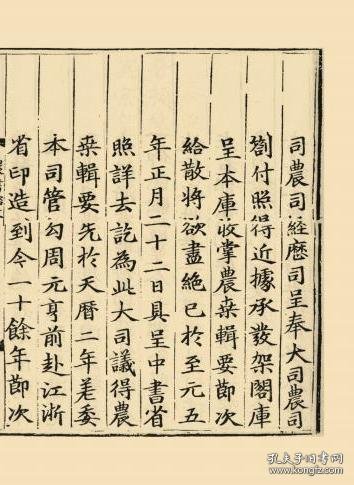 司農司經歷司呈奉大司農司
劄付照得近據承發架閣庫
呈本庫收掌農桒輯要節次
給散將欲盡絶已於至元五
年正月二十二日具呈中書省
照詳去訖為此大司議得農
桒輯要先於天曆二年差委
本司管勾周元亨前赴江浙
省印造到今一十餘年節次
孔夫子旧书网